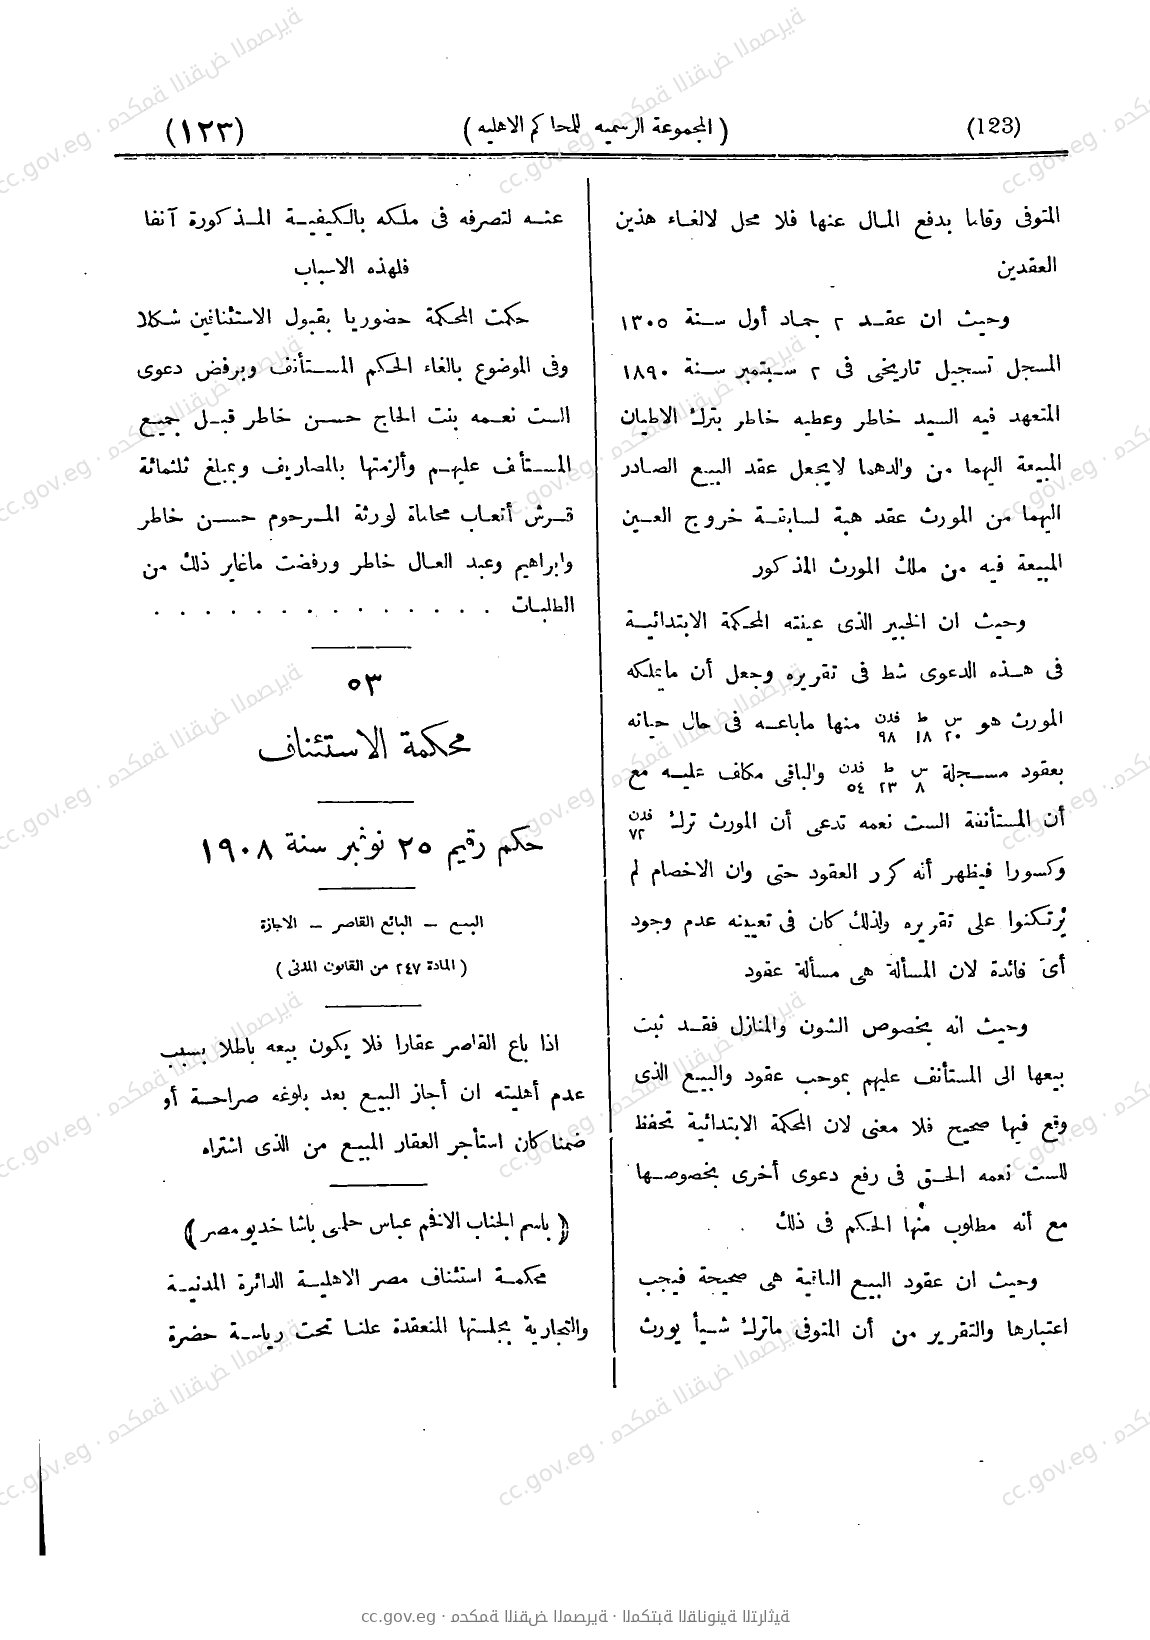 (123)
(المجموعة الرسميه للمحاكم الاهليه)
(١٢٣)
المتوفى وقاما بدفع المال عنها فلا محل لالغاء هذين
العقدين
وحيث ان عقد ٢ جماد أول سنة ١٣٠٥
المسجل تسجيل تاريخى فى ٢ سبتمبر سنة ١٨٩٠
المتعهد فيه السيد خاطر وعطيه خاطر بترك الاطيان
المبيعة اليهما من والدهما لا يجعل عقد البيع الصادر
اليهما من المورث عقد هبة لسابقة خروج العين
المبيعة فيه من ملك المورث المذكور
وحيث ان الخبير الذى عينته المحكمة الابتدائية
فى هذه الدعوى شط فى تقريره وجعل أن مايملكه
المورث هو س ٢٠ ط ١٨ فدن ٩٨ منها ماباعه فى حال حياته
بعقود مسجلة س ٨ ط ٢٣ فدن ٥٤ والباقى مكلف عليه مع
أن المستأنفة الست نعمه تدعى أن المورث ترك فدن ٧٢
وكسورا فيظهر أنه كرر العقود حتى وان الاخصام لم
يرتكنوا على تقريره ولذلك كان فى تعيينه عدم وجود
أى فائدة لان المسألة هى مسألة عقود
وحيث انه بخصوص الشون والمنازل فقد ثبت
بيعها الى المستأنف عليهم بموجب عقود والبيع الذى
وقع فيها صحيح فلا معنى لان المحكمة الابتدائية تحفظ
للست نعمه الحق فى رفع دعوى أخرى بخصوصها
مع أنه مطلوب منها الحكم فى ذلك
وحيث ان عقود البيع الباتية هى صحيحة فيجب
اعتبارها والتقرير من أن المتوفى ماترك شيأ يورث
عنه لتصرفه فى ملكه بالكيفية المذكورة آنفا
فلهذه الاسباب
حكمت المحكمة حضوريا بقبول الاستئنافين شكلا
وفى الموضوع بالغاء الحكم المستأنف وبرفض دعوى
الست نعمه بنت الحاج حسن خاطر قبل جميع
المستأنف عليهم وألزمتها بالمصاريف وبمبلغ ثلثمائة
قرش أتعاب محاماة لورثة المرحوم حسن خاطر
وابراهيم وعبد العال خاطر ورفضت ماغاير ذلك من
الطلبات . . . . . . . . . . . . . .
٥٣
محكمة الاستئناف
حكم رقيم ٢٥ نوفمبر سنة ١٩٠٨
البيع – البائع القاصر – الاجازة
(المادة ٢٤٧ من القانون المدنى)
اذا باع القاصر عقارا فلا يكون بيعه باطلا بسبب
عدم أهليته ان أجاز البيع بعد بلوغه صراحة أو
ضمنا كان استأجر العقار المبيع من الذى اشتراه
(باسم الجناب الافخم عباس حلمى باشا خديو مصر)
محكمة استئناف مصر الاهلية الدائرة المدنية
والتجارية بجلستها المنعقدة علنا تحت رياسة حضرة
cc.gov.eg · محكمة النقض المصرية · المكتبة القانونية التراثية